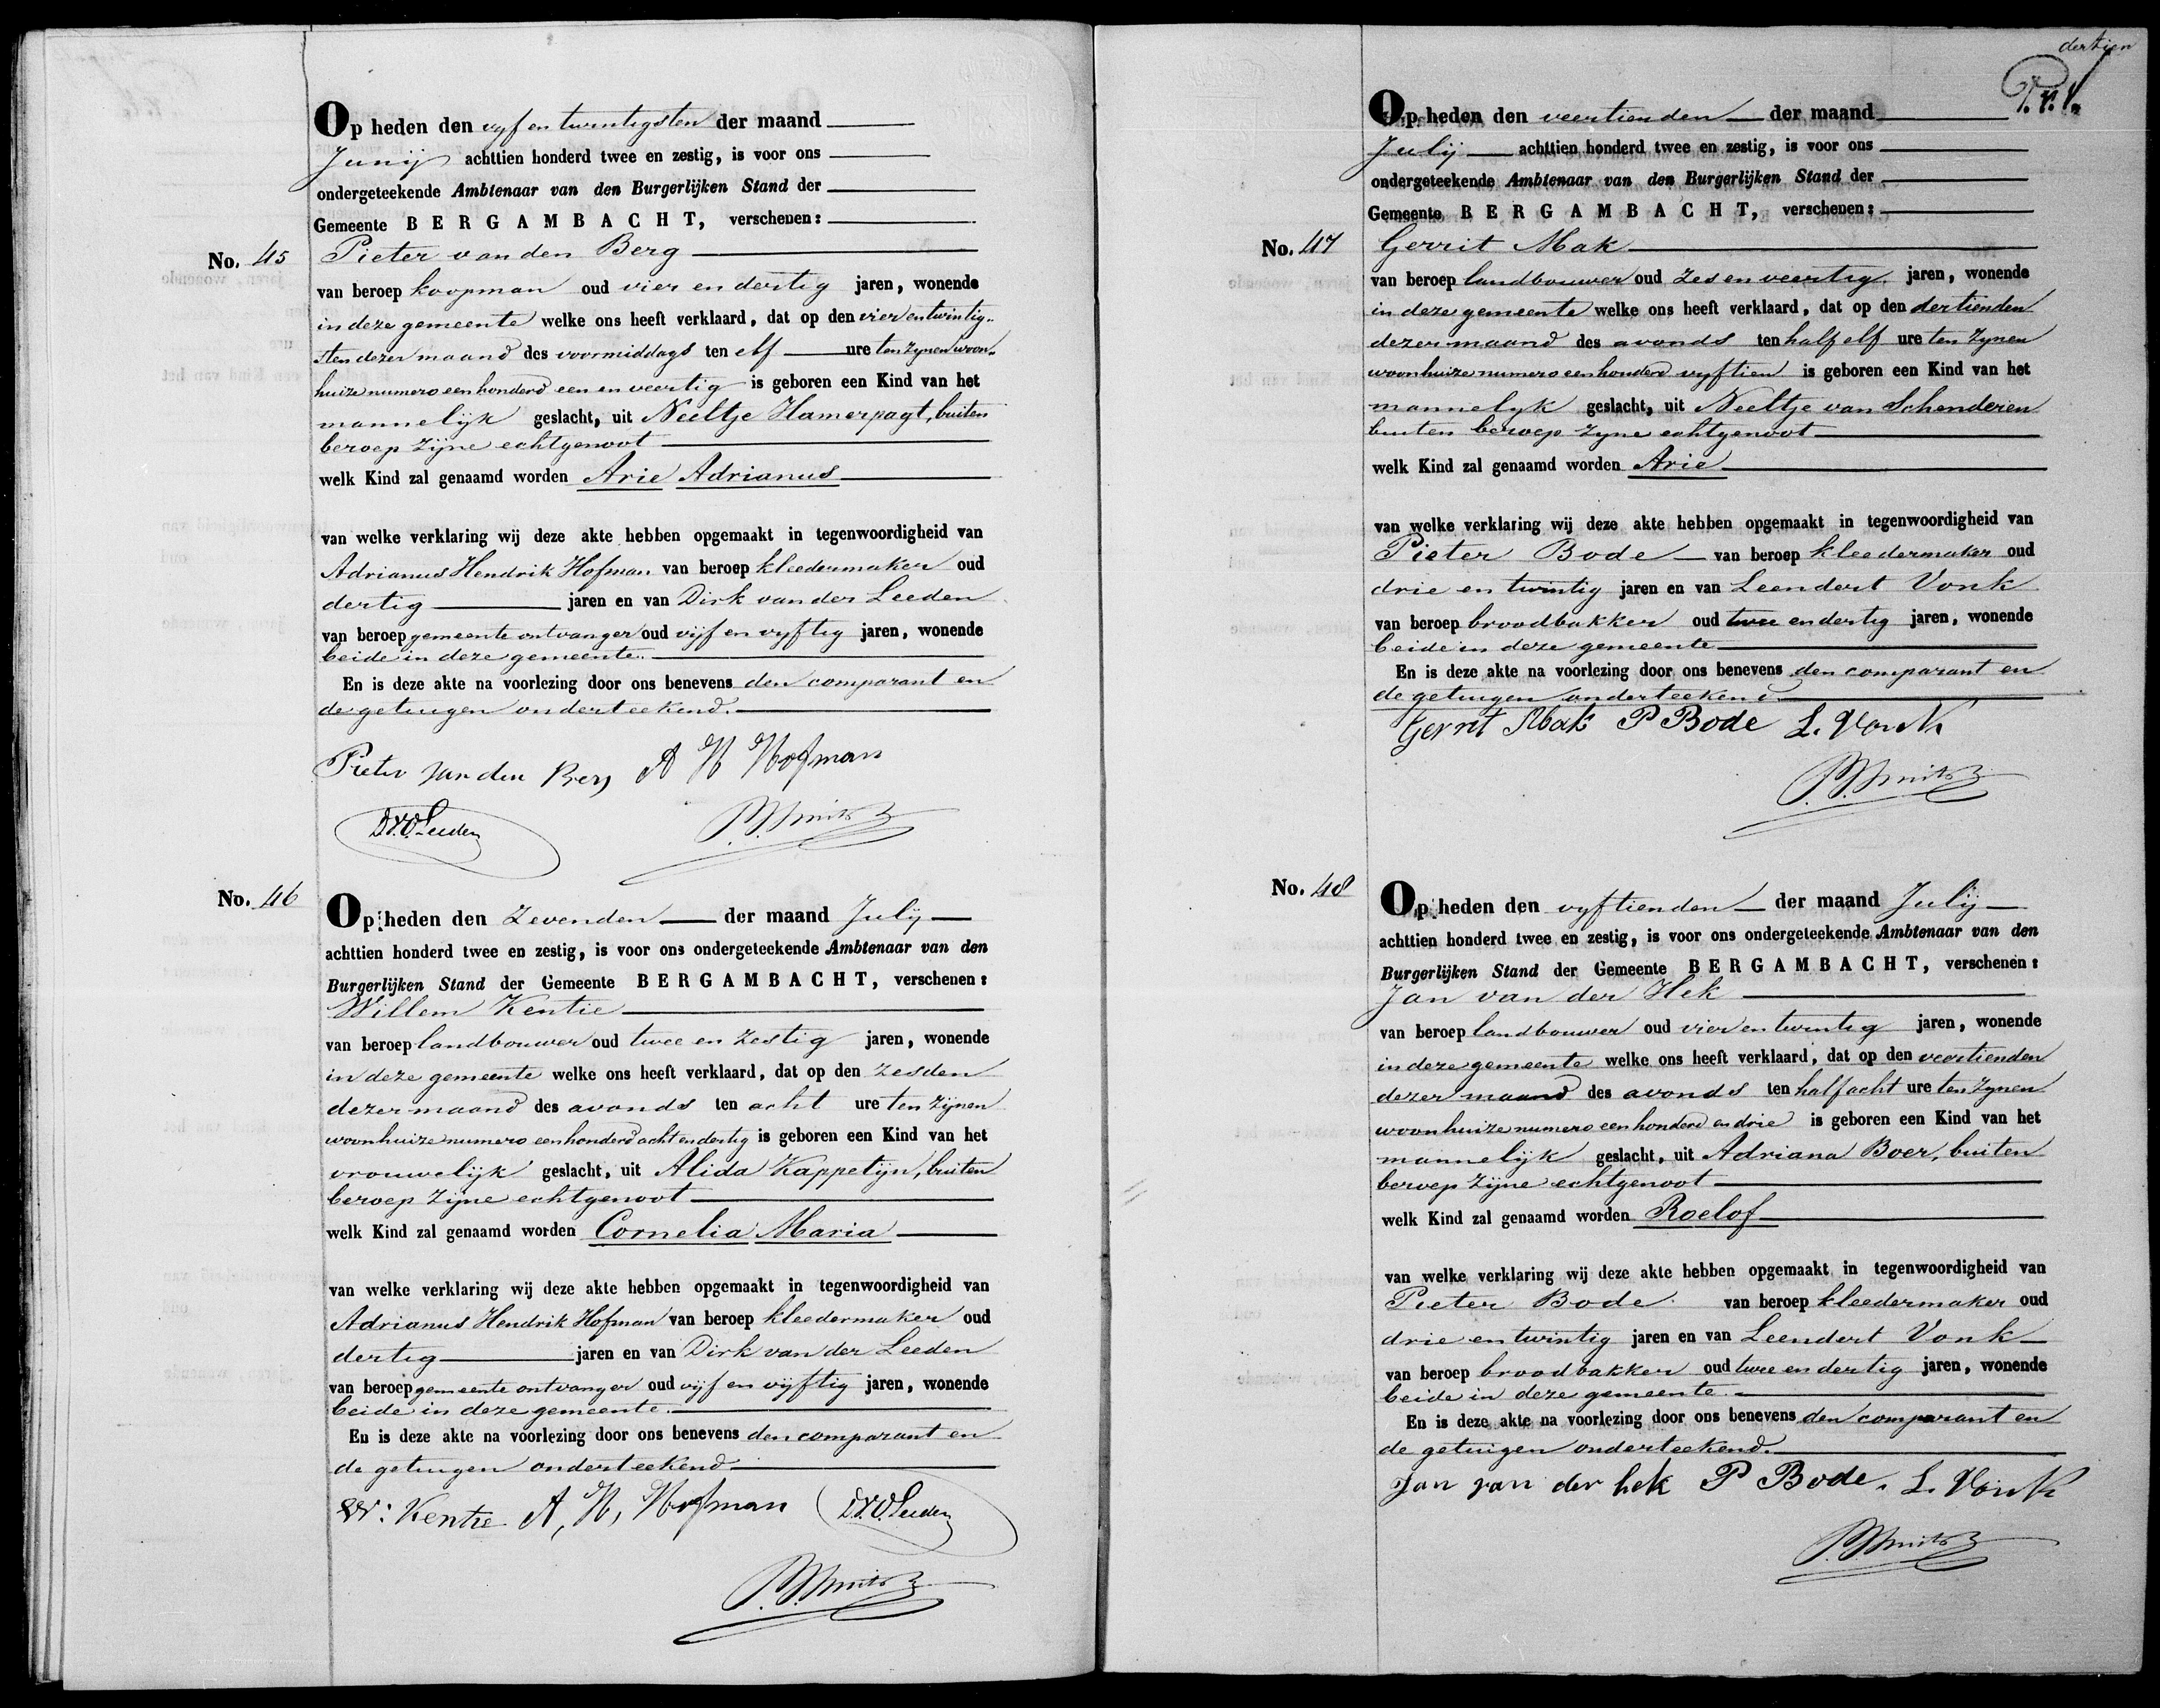 Op heden den vyf en twintigsten der maand
Junij achttien honderd twee en zestig, is voor ons
ondergeteekende Ambtenaar van den Burgerlijken Stand der
Gemeente BERGAMBACHT, verschenen:
No. 45 Pieter van den Berg
van beroep koopman oud vier en dertig jaren, wonende
in deze gemeente welke ons heeft verklaard, dat op den vier en twintig-
sten dezer maand des voormiddags ten elf ure ten zynen woon-
huize numero een honderd een en veertig is geboren een Kind van het
mannelijk geslacht, uit Neeltje Hamerpagt, buiten
beroep zijne echtgenoot
welk Kind zal genaamd worden Arie Adrianus
van welke verklaring wij deze akte hebben opgemaakt in tegenwoordigheid van
Adrianus Hendrik Hofman van beroep kleedermaker oud
dertig jaren en van Dirk van der Leeden
van beroep gemeente ontvanger oud vijf en vyftig jaren, wonende
beide in deze gemeente.
En is deze akte na voorlezing door ons benevens den comparant en
de getuigen onderteekend.
Pieter van den Berg A H Hofman
D.V.D. Leeden
No. 46
Op heden den Zevenden der maand Julij
achttien honderd twee en zestig, is voor ons ondergeteekende Ambtenaar van den
Burgerlijken Stand der Gemeente BERGAMBACHT, verschenen:
Willem Kentie
van beroep landbouwer oud twee en zestig jaren, wonende
in deze gemeente welke ons heeft verklaard, dat op den zesden
dezer maand des avonds ten acht ure ten zijnen
woonhuize numero een honderd acht en dertig is geboren een Kind van het
vrouwelijk geslacht, uit Alida Kappetijn, buiten
beroep zijne echtgenoot
welk Kind zal genaamd worden Cornelia Maria
van welke verklaring wij deze akte hebben opgemaakt in tegenwoordigheid van
Adrianus Hendrik Hofman van beroep kleedermaker oud
dertig jaren en van Dirk van der Leeden
van beroep gemeente ontvanger oud vijf en vijftig jaren, wonende
beide in deze gemeente.
En is deze akte na voorlezing door ons benevens den comparant en
de getuigen onderteekend
W: Kentie A, H, Hofman D.V.D. Leeden
dertien
Op heden den veertienden der maand
Julij achttien honderd twee en zestig, is voor ons
ondergeteekende Ambtenaar van den Burgerlijken Stand der
Gemeente BERGAMBACHT, verschenen:
No. 47 Gerrit Mak
van beroep landbouwer oud zes en veertig jaren, wonende
in deze gemeente welke ons heeft verklaard, dat op den dertienden
dezer maand des avonds ten half elf ure ten zynen
woonhuize numero een honderd vyftien is geboren een Kind van het
mannelyk geslacht, uit Neeltje van Schenderen
buiten beroep zyne echtgenoot
welk Kind zal genaamd worden Arie
van welke verklaring wij deze akte hebben opgemaakt in tegenwoordigheid van
Pieter Bode van beroep kleedermaker oud
drie en twintig jaren en van Leendert Vonk
van beroep broodbakker oud twee en dertig jaren, wonende
beide in deze gemeente
En is deze akte na voorlezing door ons benevens den comparant en
de getuigen onderteekend
Gerrit Mak P Bode L. Vonk
No. 48
Op heden den vyftienden der maand Julij
achttien honderd twee en zestig, is voor ons ondergeteekende Ambtenaar van den
Burgerlijken Stand der Gemeente BERGAMBACHT, verschenen:
Jan van der Hek
van beroep landbouwer oud vier en twintig jaren, wonende
in deze gemeente welke ons heeft verklaard, dat op den veertienden
dezer maand des avonds ten half acht ure ten zynen
woonhuize numero een honderd en drie is geboren een Kind van het
mannelijk geslacht, uit Adriana Boer, buiten
beroep zijne echtgenoot
welk Kind zal genaamd worden Roelof
van welke verklaring wij deze akte hebben opgemaakt in tegenwoordigheid van
Pieter Bode van beroep kleedermaker oud
drie en twintig jaren en van Leendert Vonk
van beroep broodbakker oud twee en dertig jaren, wonende
beide in deze gemeente.
En is deze akte na voorlezing door ons benevens den comparant en
de getuigen onderteekend.
Jan van der hek P Bode. L. Vonk